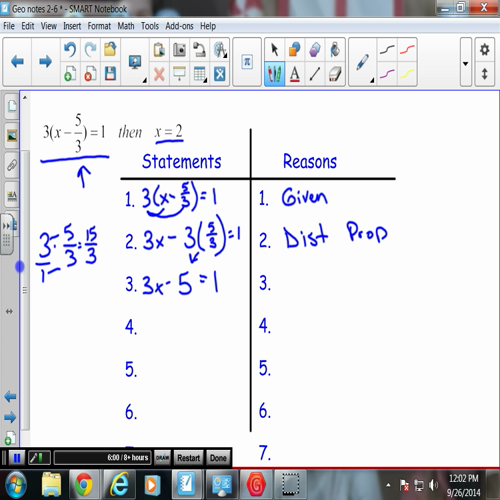 Geo notes 2-6 * - SMART Notebook
File Edit View Insert Format Math Tools Add-ons Help
3(x - 5/3) = 1 then x = 2
Statements Reasons
1. 3(x - 5/3) = 1 1. Given
2. 3x - 3(5/3) = 1 2. Dist Prop
3/1 · 5/3 = 15/3
3. 3x - 5 = 1 3.
4. 4.
5. 5.
6. 6.
7.
6:00 / 8+ hours DRAW Restart Done
12:02 PM
9/26/2014